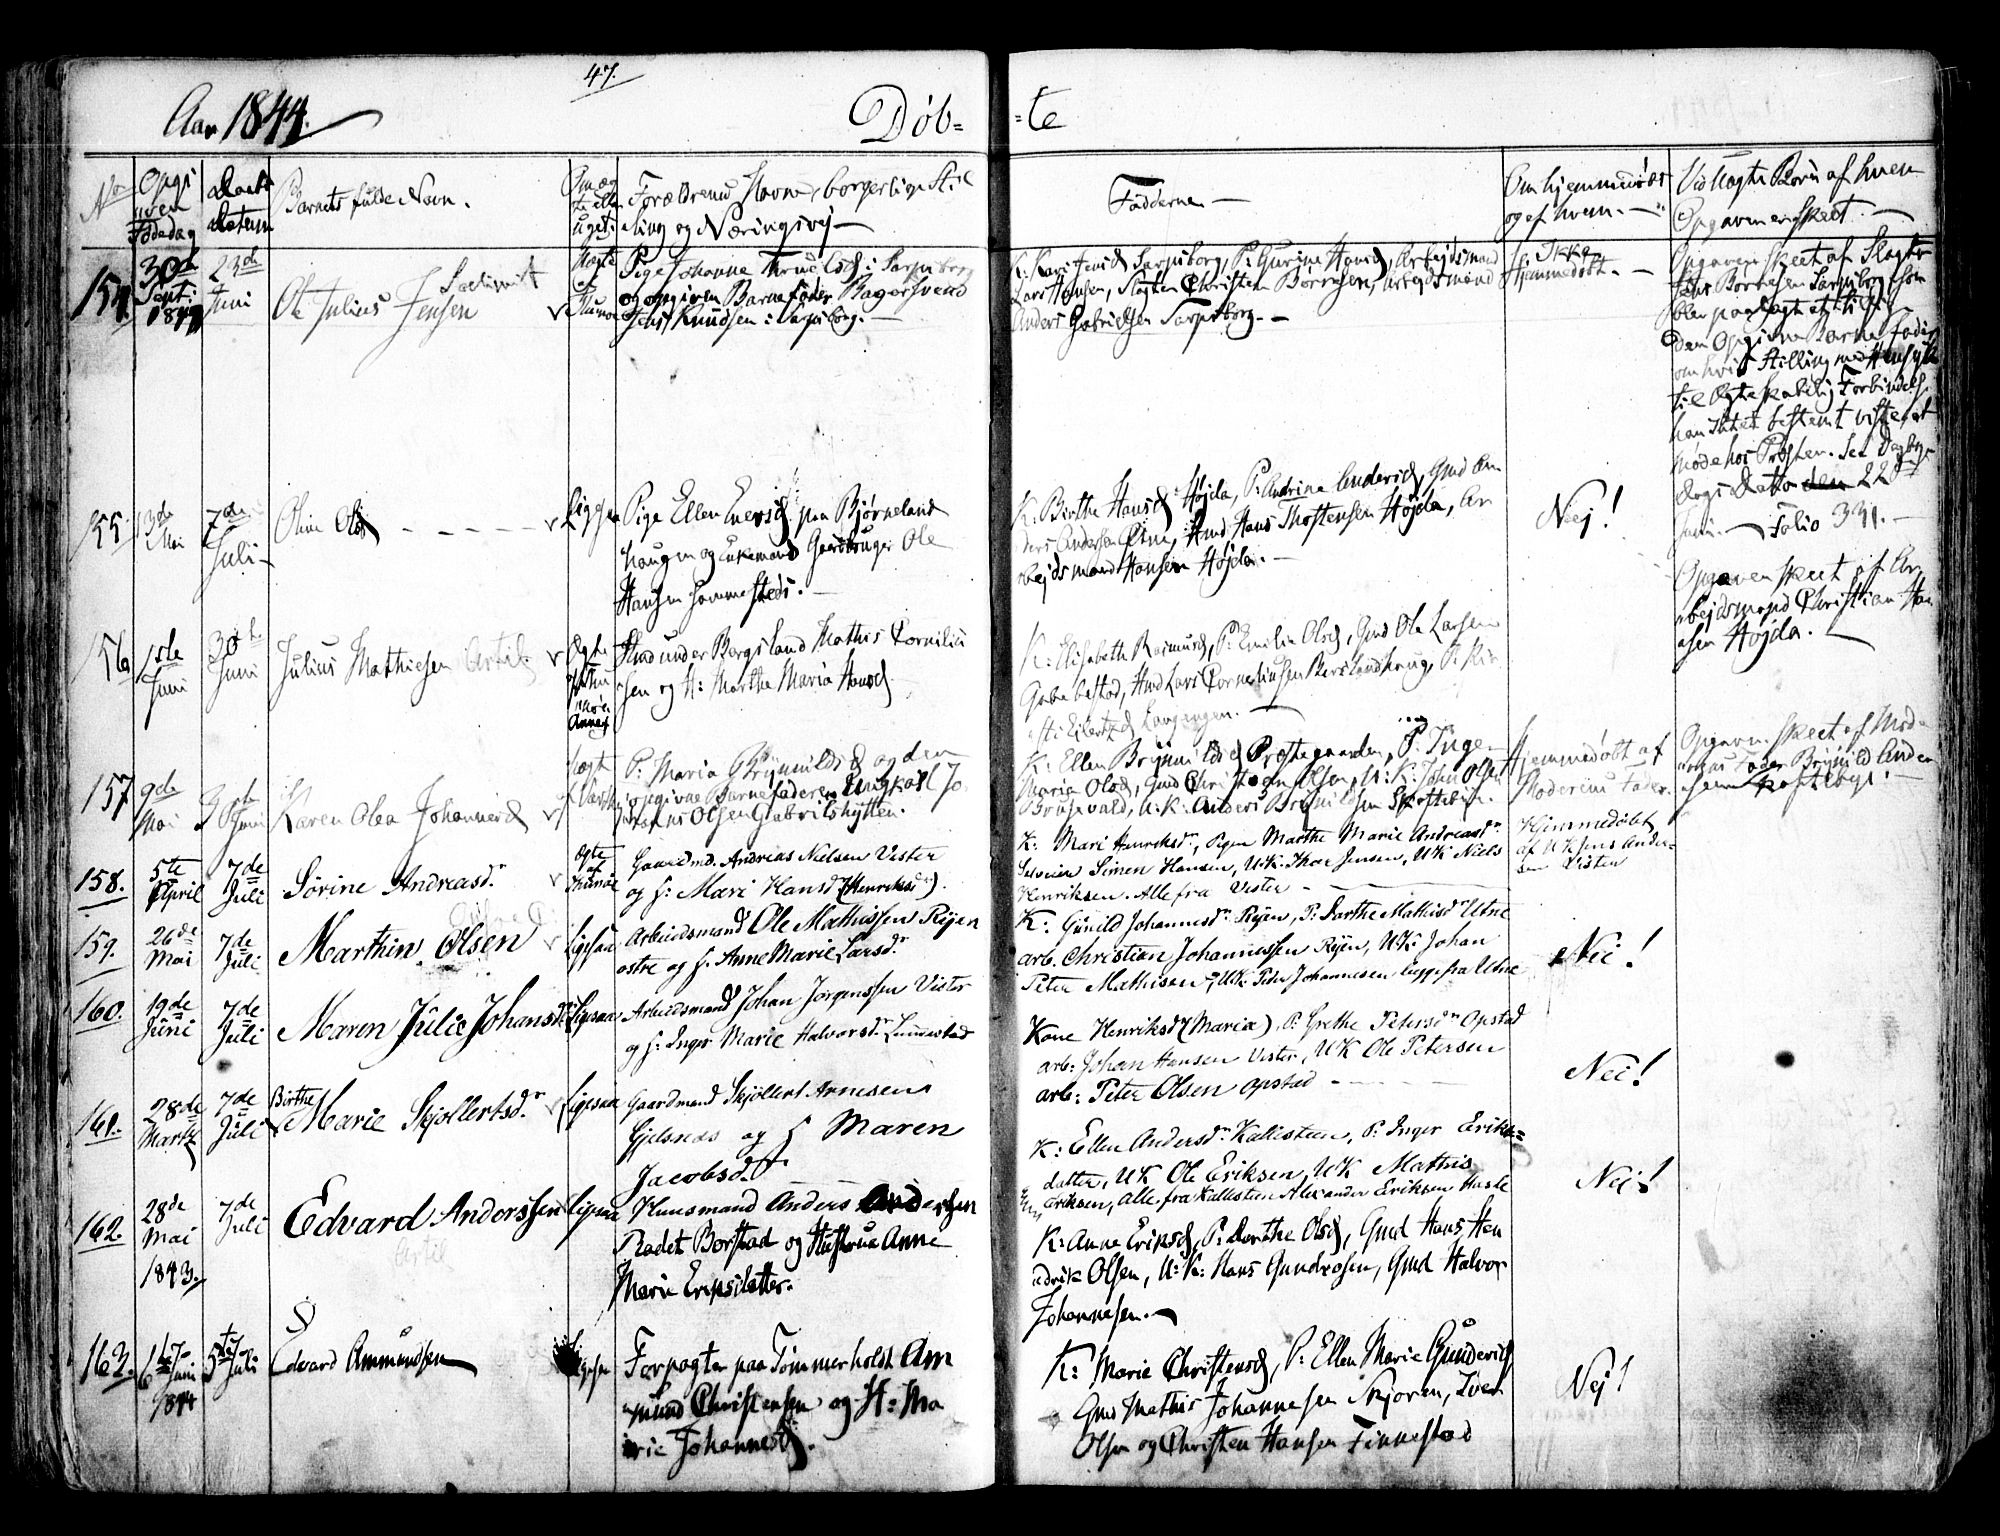 47.
Aar 1844.
Døb=
=te
No
Opgi
den
Fødedag
Daabs
Datum
Barnets fulde Navn.
Om æg
te eller
uægt.
Forældrenes Navne, borgerlige Stil
ling og Næringsvej
Faddere
Om hjemmedøbt
og af hvem.
Vid uægte Børn af hvem
Opgaven er skeet.
154
30te
Sept:
1843
23de
Juni
Ole Julius Jensen
Uægte
Pige Johanne Truelsd i Sarpsborg
og opgiven Barnefader
Jens Knudsen i Sarpsborg.
K: Kari Jensd Sarpsborg, P: Gurine Hansd, Arbejdsmand
Lars Hansen, Slagter Christen Børresen, Arbejdsmand
Anders Gabrielsen Sarpsborg.
Ikke
Hjemmedøbt.
Opgaven skeet af Slagter
Børresen Sarpsborg, som
blev paalagt at tilsige
den Opgivne Barne Fader
om hvis Stilling med Hensyn
til Ægteskabelig Forbindelse
han Intet bestemt vidste, at
møde hos Provsten. See Dagbogs
Dato den 22de
Juni. Folio 331.
155
13de
Mai
7de
Juli
Oline Olsd
Pige Ellen Iversd paa Bjørneland
haugen og Enkemand Gaardbruger Ole
Hansen
K: Birthe Hansd Højda, P: Andrine Andersd, Gmd An
ders Andersen Hmd Hans Thostensen Højda, Ar
bejdsmand Hansen Højda.
Nej!
Opgaven skeet af Ar
bejdsmand Christian Han
sen Højda.
156
1ste
Juni
30te
Juni
Julius Mathiesen
Ægte
under Bergsland Mathis Corneliu
sen og H: Marthe Maria Hansd
K: Elisabeth Rasmusd, P: Emilie Olsd, Gmd Ole Larsen
Grebestad, Hmd Lars Corneliussen Berslandhaug, P: Kir
157
9de
Mai
30te
Juni
Karen Olea Johannesd
P: Maria Brynnildsd og den
opgivne Barnefader Ungkarl Jo
hannes Olsen Gabrielshytten.
K: Ellen Brynnildsd Prestegaarden, P: Inge
Maria Olsd, Gmd Christian Olsen, U: K: John Olsen
U: K: Anders Brynnildsen Skoftebye.
Hjemmedøbt af
Moderens Fader.
Opgaven skeet af Mode
rens Fader Brynild Ander
sen Skoftebye.
158.
5te
April
7de
Juli
Sørine Andreasdr
Ægte
Gaardmd. Andreas Nielsen Vister
og h: Mari Hansdr (Henriksdr).
K: Mari Henriksdr, Pigen Marthe Marie Andreasdr
Simen Hansen, U.K. Thor Jensen, U K Niels
Henriksen. Alle fra Vister
Hjemmedøbt
af U K Jens Ander
sen Visten
159.
26de
Mai
7de
Juli
Marthin. Olsen
Ligesaa
Arbeidsmand Ole Mathissen Ryen
østre og h. Anne Marie Larsdr
K: Gunild Johannesdr Ryen, P: Marthe Mathisdr Utne
arb. Christian Johannessen Ryen, U.K: Johan
Peter Mathisen, U.K. Peder Johannesen begge fra Utne
Nei!
160.
19de
Juni
7de
Juli
Maren Julie Johansdr
Ligesaa
Arbeidsmand Johan Jørgenssen Vister
og h: Inger Marie Halvorsdr Lunnestad
Kone Henriksdr (Maria), P: Grethe Petersdr Opstad
arb: Johan Hansen Vister, U K Ole Petersen
arb: Peter Olsen Opstad
Nei!
161.
28de
Martz
7de
Juli
Birthe
Marie Skjøllertsdr
Ligesaa
Gaardmand Skjøllert Arnesen
Gjelsnæs og h Maren
Jacobsdr
K: Ellen Andersdr Kallesteen, P. Inger Eriks=
datter, U K Ole Eriksen, U K Mathis
Eriksen, alle fra Kallesteen Alexander Eriksen Hasle
Nei!
162.
28de
Mai
1843.
7de
Juli
Edvard Anderssen
Ligesaa
Huusmand Anders Andersen
Rødet Borstad og Hustrue Anne
Marie Eriksdatter.
K: Anne Eriksd, P: Dorthe Olsd, Gmd Hans Hen
drik Olsen, U: K: Hans Gundrosen, Gmd Halvor
Johannesen.
163.
Juni
1844
5te Juli
Edvard Ammundsen
Forpagter paa Tømmerholdt Am
mund Christensen og H: Ma
rie Johannesd.
K: Marie Christensd, P: Ellen Marie Gundersd
Gmd Mathis Johannesen Skjøren, Iver
Olsen og Christen Hansen Finnestad
Nej!